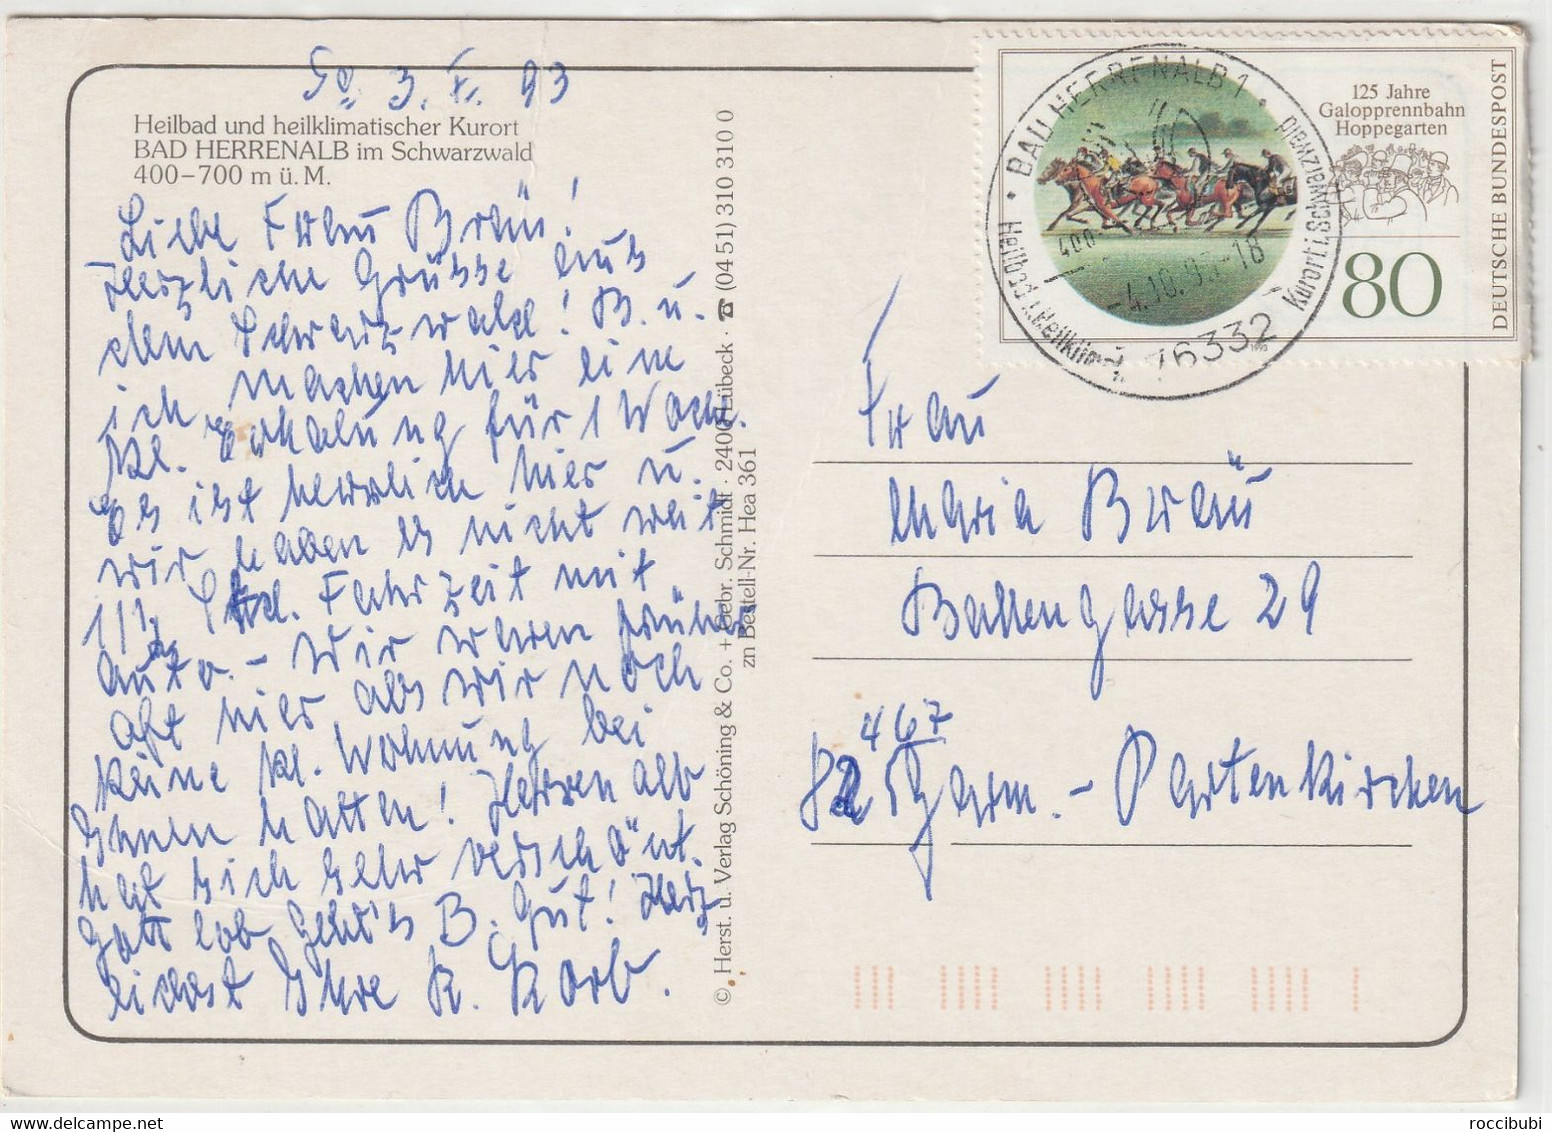 So. 3. X. 93
Heilbad und heilklimatischer Kurort
BAD HERRENALB im Schwarzwald
400–700 m ü. M.
Liebe Frau Bräu!
Herzliche Grüsse aus
dem Schwarzwald! B. u.
ich machen hier eine
kl. Erholung für 1 Woche.
Es ist herrlich hier u.
wir haben es nicht weit
1 1/2 Std. Fahrzeit mit
Auto. – Wir waren früher
oft hier als wir noch
keine kl. Wohnung bei
Ihnen hatten! Herrenalb
hat sich sehr verschönt.
Gott lob geht's B. gut! Herz
lichst Ihre R. Korb.
© Herst. u. Verlag Schöning & Co. + Gebr. Schmidt · 2400 Lübeck · ☎ (04 51) 310 310 0
zn Bestell-Nr. Hea 361
125 Jahre
Galopprennbahn
Hoppegarten
80
DEUTSCHE BUNDESPOST
BAD HERRENALB 1
-4.10.93-18
76332
Frau
Maria Bräu
Ballengasse 29
82467 Garm. – Partenkirchen
roccibubi